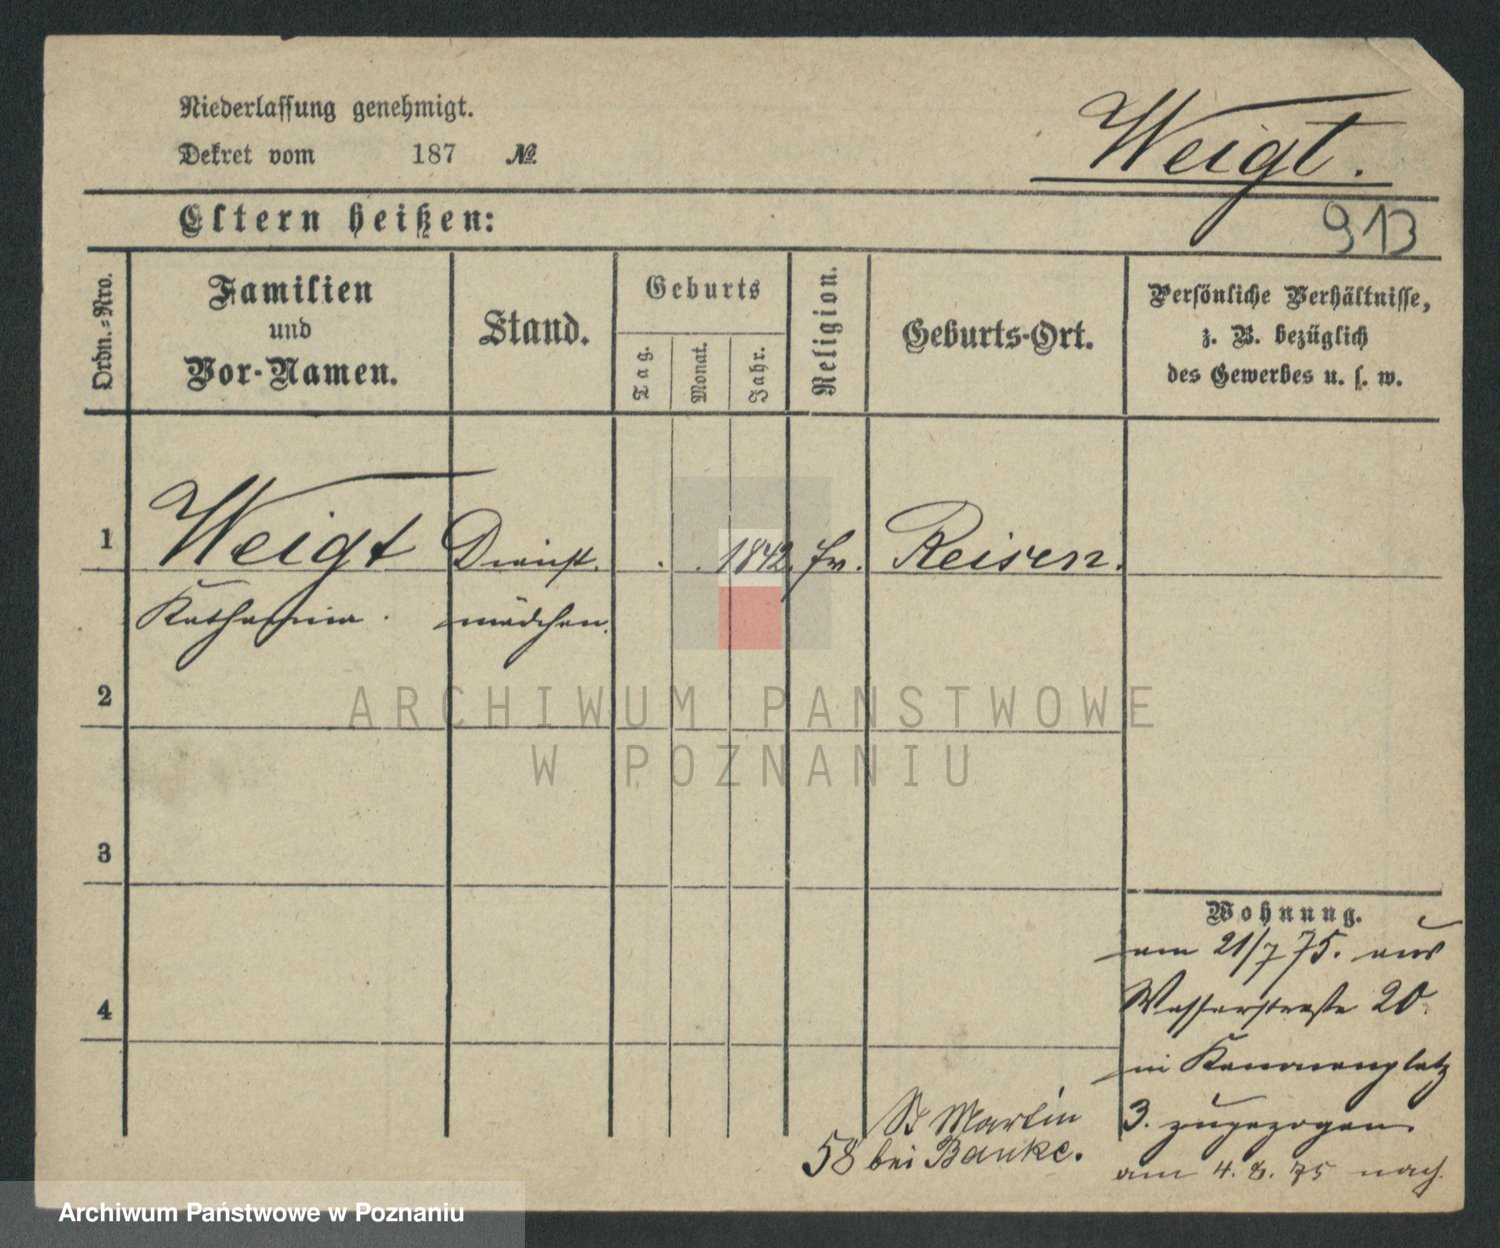 Niederlassung genehmigt.
Dekret vom 187 №
Weigt.
Eltern heißen:
913
Ordn.-Nro.
Familien
und
Vor-Namen.
Stand.
Geburts
Tag.
Monat.
Jahr.
Religion.
Geburts-Ort.
Persönliche Verhältnisse,
z. B. bezüglich
des Gewerbes u. s. w.
1 Weigt Dienst. . . 1842. Ev. Reisen.
Katharina. mädchen.
2
3
4
Wohnung.
am 21/7 75. aus
Wasserstraße 20
in Kanonenplatz
3. zugezogen.
am 4. 8. 75 nach
St Martin
58 bei Banke.
ARCHIWUM PANSTWOWE
W POZNANIU
Archiwum Państwowe w Poznaniu